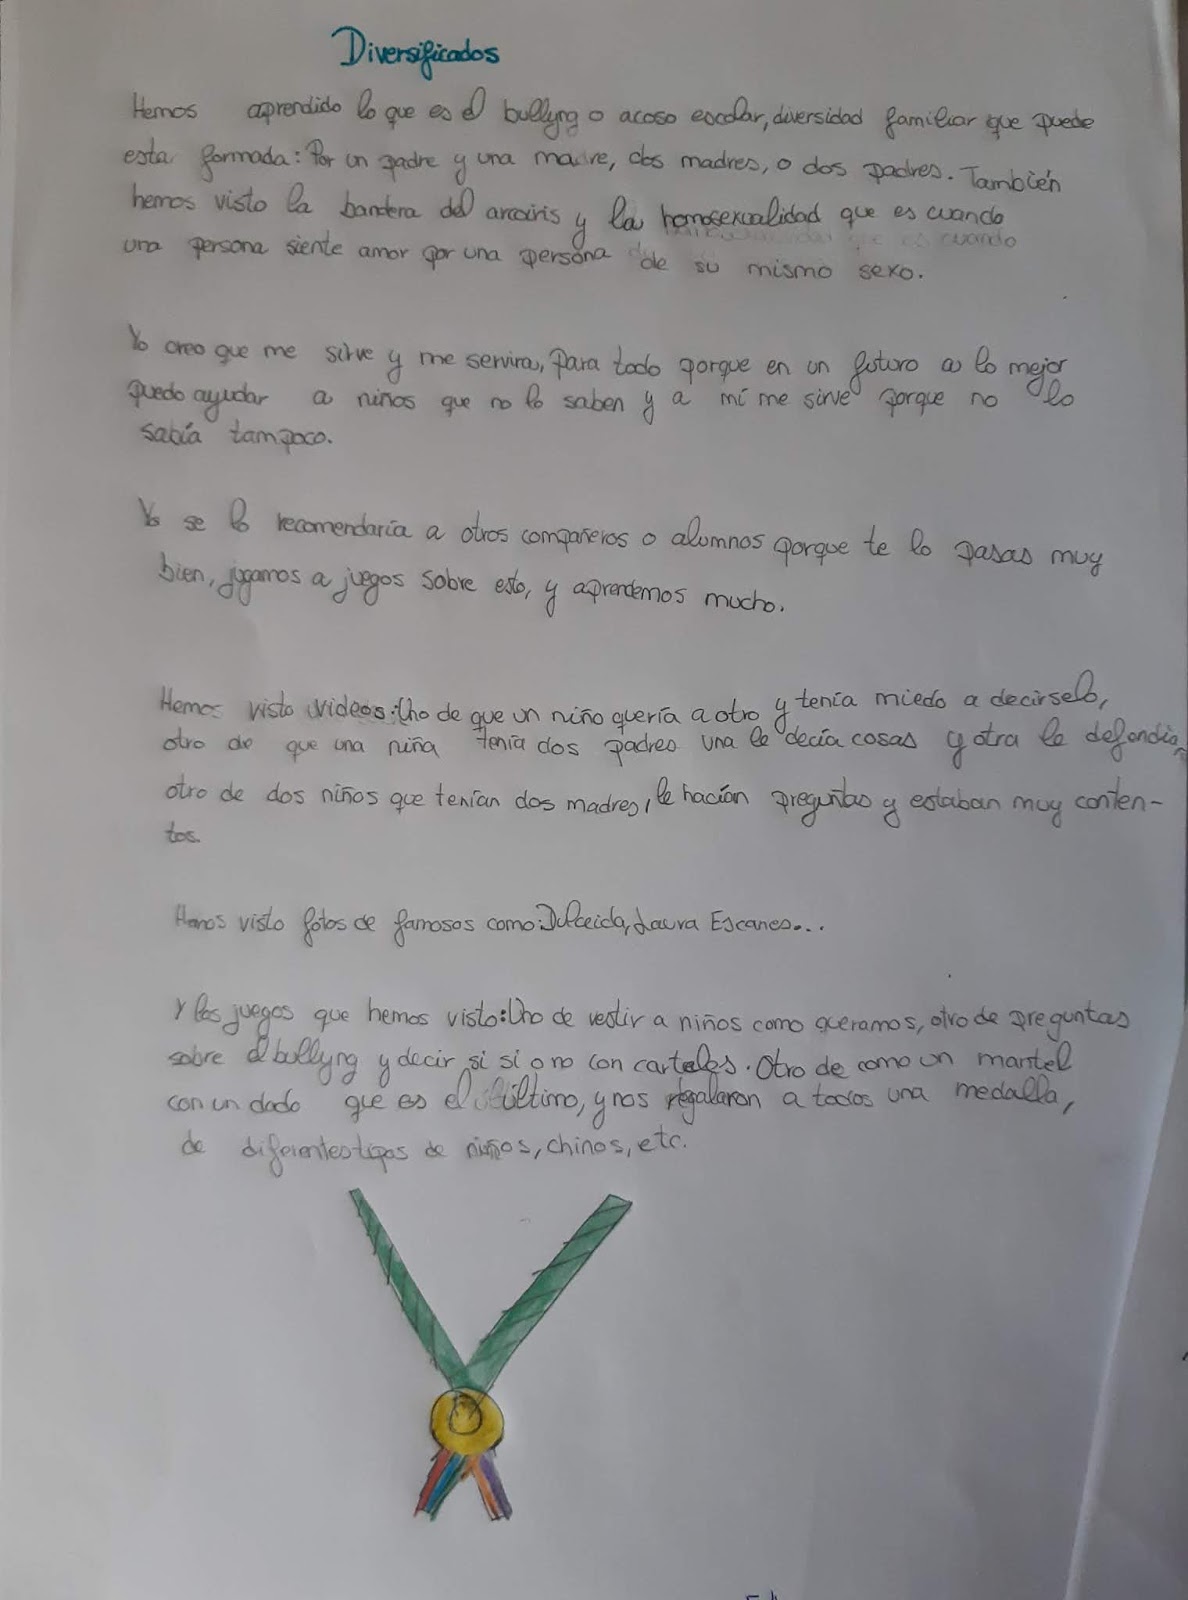 Diversificados
Hemos aprendido lo que es el bullyng o acoso escolar, diversidad familiar que puede
esta formada: Por un padre y una madre, dos madres, o dos padres. También
hemos visto la bandera del arcoiris y la homosexualidad que es cuando
una persona siente amor por una persona de su mismo sexo.
Yo creo que me sirve y me servira, para todo porque en un futuro a lo mejor
puedo ayudar a niños que no lo saben y a mí me sirve porque no lo
sabía tampoco.
Yo se lo recomendaría a otros compañeros o alumnos porque te lo pasas muy
bien, jugamos a juegos sobre esto, y aprendemos mucho.
Hemos visto videos: Uno de que un niño quería a otro y tenía miedo a decirselo,
otro de que una niña tenía dos padres una le decía cosas y otra le defendia,
otro de dos niños que tenían dos madres, le hacían preguntas y estaban muy conten-
tos.
Hemos visto fotos de famosos como: Dulceida, Laura Escanes...
Y los juegos que hemos visto: Uno de vestir a niños como queramos, otro de preguntas
sobre el bullyng y decir si si o no con carteles. Otro de como un mantel
con un dado que es el último, y nos regalaron a todos una medalla,
de diferentes tipos de niños, chinos, etc.